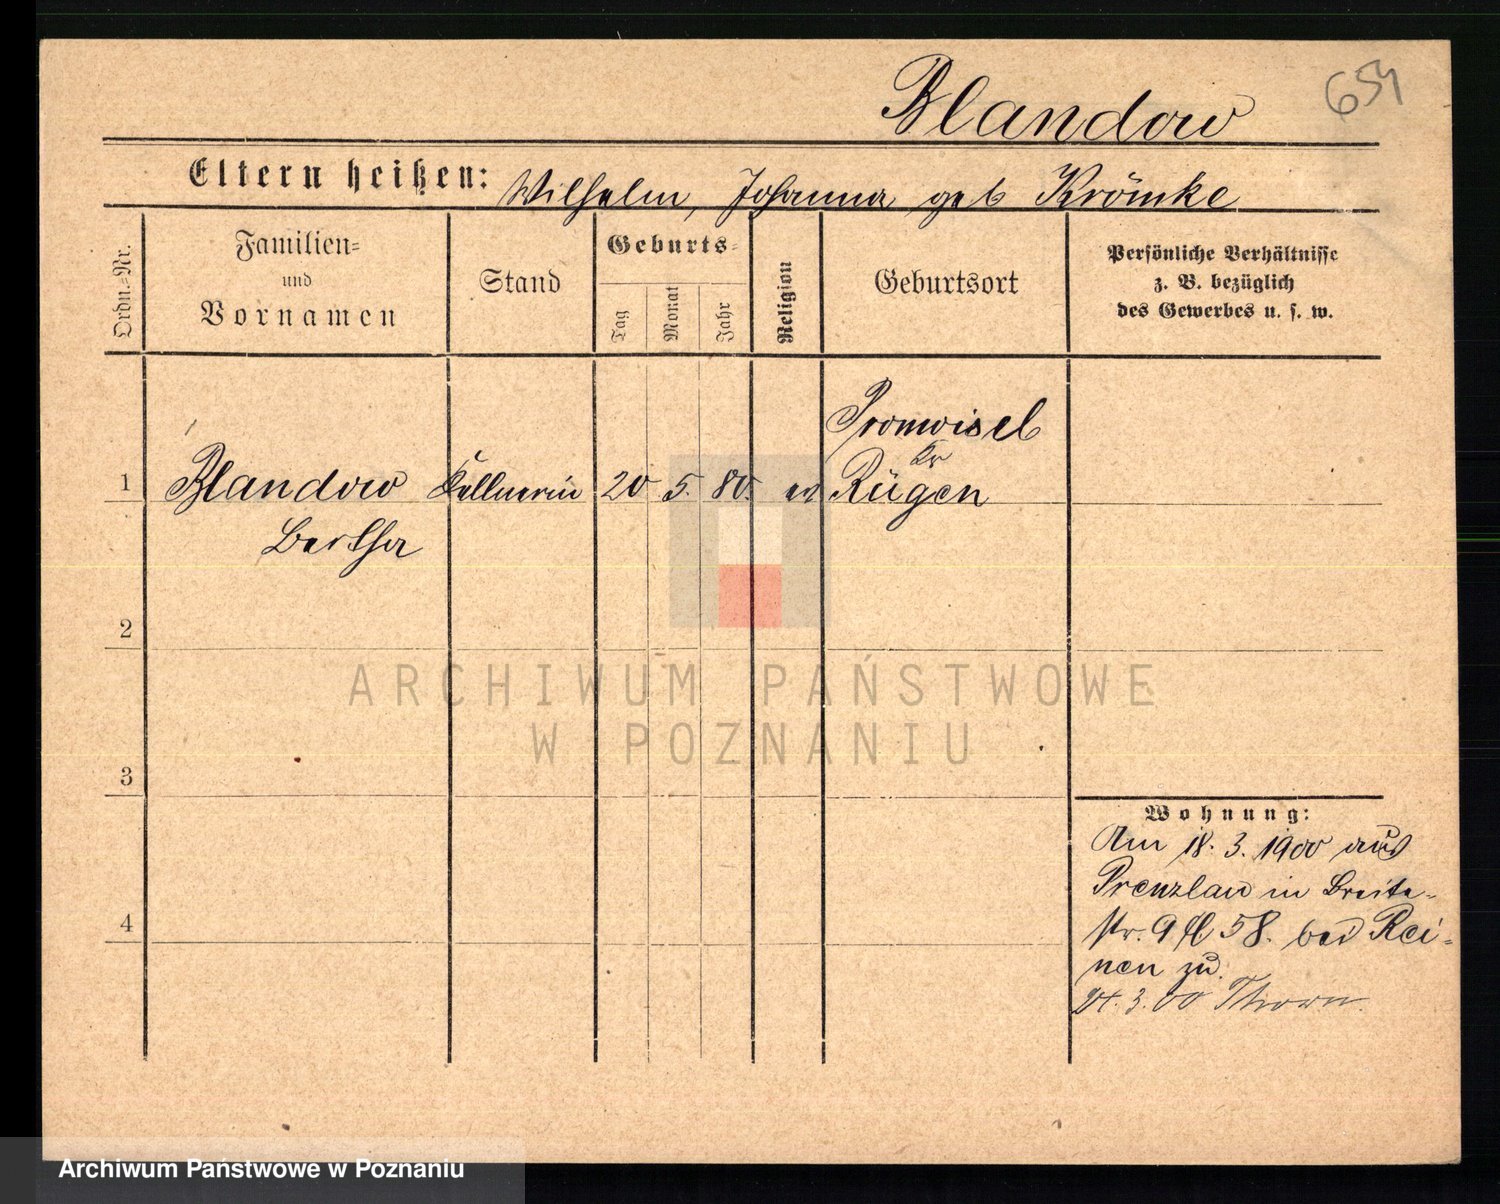 Blandow
654
Eltern heißen: Wilhelm, Johanna geb Krömke
Ordn.-Nr.
Familien-
und
Vornamen
Stand
Geburts-
Tag
Monat
Jahr
Religion
Geburtsort
Persönliche Verhältnisse
z. B. bezüglich
des Gewerbes u. s. w.
Promoisel
Kr
1 Blandow Kellnerin 20 5. 80. ev Rügen
Bertha
2
ARCHIWUM PAŃSTWOWE
W POZNANIU
3
Wohnung:
Am 18. 3. 1900 aus
Prenzlau in Breite-
str. 9 58. bei Rei-
nen zu.
24. 3. 00 Thorn.
4
Archiwum Państwowe w Poznaniu